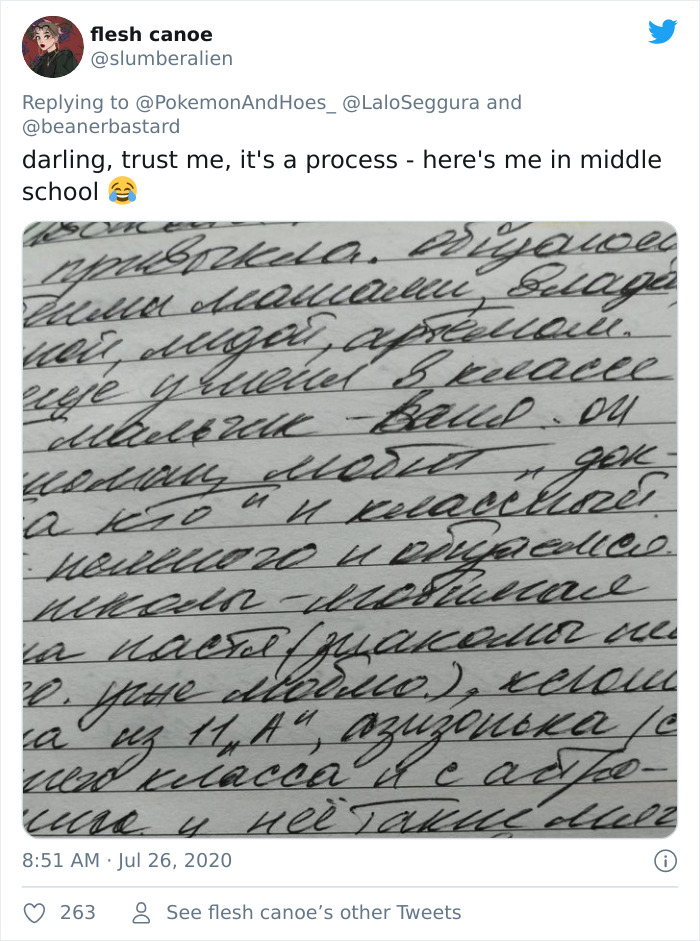 flesh canoe
@slumberalien
Replying to @PokemonAndHoes_ @LaloSeggura and
@beanerbastard
darling, trust me, it's a process - here's me in middle
school 😂
привыкла. общаюсь
владо
ной, лидой, артёмом.
еще у меня в классе
мальчик - ваня. он
любит „док-
а кто" и классный.
немного и общаемся.
школы - любимая
на настя (знакомы не
о. уже люблю.), ксюш
а из 11 „А", азизонька (с
него класса и с астро-
у неё такие мяг
8:51 AM · Jul 26, 2020
263
See flesh canoe’s other Tweets